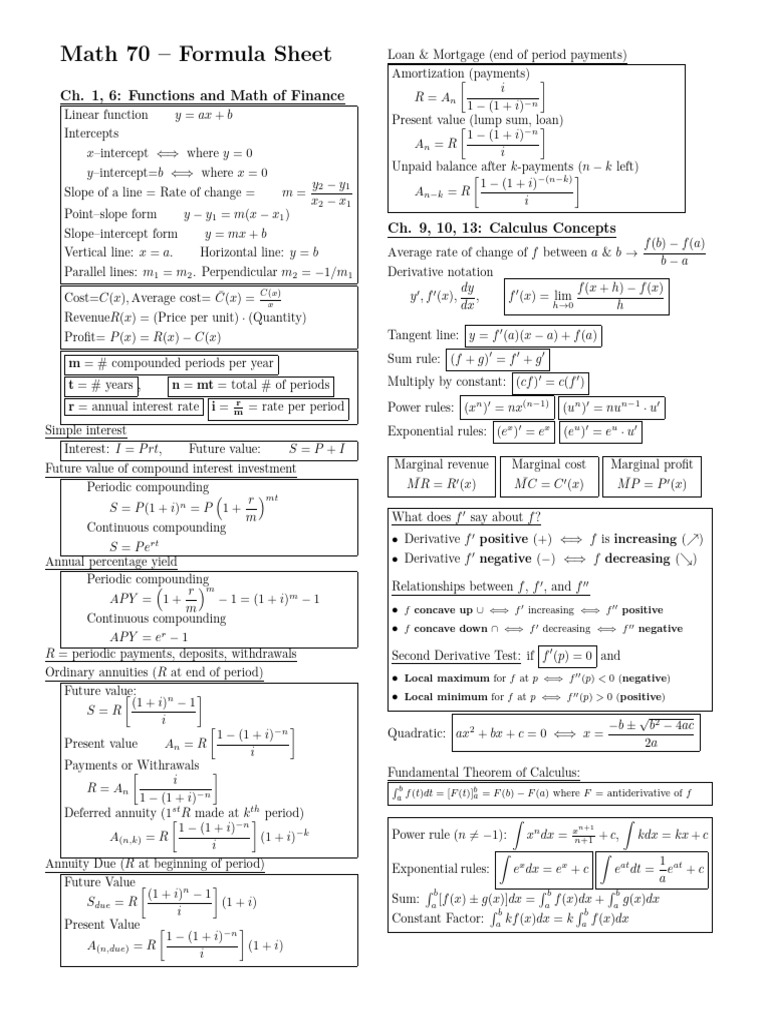 Math 70 – Formula Sheet
Ch. 1, 6: Functions and Math of Finance
Linear function y = ax + b
Intercepts
x–intercept ⟺ where y = 0
y–intercept=b ⟺ where x = 0
Slope of a line = Rate of change = m = \frac{y_2 - y_1}{x_2 - x_1}
Point–slope form y − y_1 = m(x − x_1)
Slope–intercept form y = mx + b
Vertical line: x = a. Horizontal line: y = b
Parallel lines: m_1 = m_2. Perpendicular m_2 = −1/m_1
Cost=C(x), Average cost= \bar{C}(x) = \frac{C(x)}{x}
RevenueR(x) = (Price per unit) · (Quantity)
Profit= P(x) = R(x) − C(x)
m = # compounded periods per year
t = # years, n = mt = total # of periods
r = annual interest rate i = \frac{r}{m} = rate per period
Simple interest
Interest: I = Prt, Future value: S = P + I
Future value of compound interest investment
Periodic compounding
S = P(1 + i)^n = P(1 + \frac{r}{m})^{mt}
Continuous compounding
S = Pe^{rt}
Annual percentage yield
Periodic compounding
APY = (1 + \frac{r}{m})^m − 1 = (1 + i)^m − 1
Continuous compounding
APY = e^r − 1
R = periodic payments, deposits, withdrawals
Ordinary annuities (R at end of period)
Future value:
S = R[\frac{(1 + i)^n − 1}{i}]
Present value A_n = R[\frac{1 − (1 + i)^{−n}}{i}]
Payments or Withrawals
R = A_n[\frac{i}{1 − (1 + i)^{−n}}]
Deferred annuity (1^{st}R made at k^{th} period)
A_{(n,k)} = R[\frac{1 − (1 + i)^{−n}}{i}](1 + i)^{−k}
Annuity Due (R at beginning of period)
Future Value
S_{due} = R[\frac{(1 + i)^n − 1}{i}](1 + i)
Present Value
A_{(n,due)} = R[\frac{1 − (1 + i)^{−n}}{i}](1 + i)
Loan & Mortgage (end of period payments)
Amortization (payments)
R = A_n[\frac{i}{1 − (1 + i)^{−n}}]
Present value (lump sum, loan)
A_n = R[\frac{1 − (1 + i)^{−n}}{i}]
Unpaid balance after k-payments (n − k left)
A_{n−k} = R[\frac{1 − (1 + i)^{−(n−k)}}{i}]
Ch. 9, 10, 13: Calculus Concepts
Average rate of change of f between a & b → \frac{f(b) − f(a)}{b − a}
Derivative notation
y′, f′(x), \frac{dy}{dx}, f′(x) = \lim_{h→0} \frac{f(x + h) − f(x)}{h}
Tangent line: y = f′(a)(x − a) + f(a)
Sum rule: (f + g)′ = f′ + g′
Multiply by constant: (cf)′ = c(f′)
Power rules: (x^n)′ = nx^{(n−1)} (u^n)′ = nu^{n−1} · u′
Exponential rules: (e^x)′ = e^x (e^u)′ = e^u · u′
Marginal revenue Marginal cost Marginal profit
\bar{MR} = R′(x) \bar{MC} = C′(x) \bar{MP} = P′(x)
What does f′ say about f?
• Derivative f′ positive (+) ⟺ f is increasing (↗)
• Derivative f′ negative (−) ⟺ f decreasing (↘)
Relationships between f, f′, and f″
• f concave up ∪ ⟺ f′ increasing ⟺ f″ positive
• f concave down ∩ ⟺ f′ decreasing ⟺ f″ negative
Second Derivative Test: if f′(p) = 0 and
• Local maximum for f at p ⟺ f″(p) < 0 (negative)
• Local minimum for f at p ⟺ f″(p) > 0 (positive)
Quadratic: ax^2 + bx + c = 0 ⟺ x = \frac{−b ± \sqrt{b^2 − 4ac}}{2a}
Fundamental Theorem of Calculus:
∫_a^b f(t)dt = [F(t)]_a^b = F(b) − F(a) where F = antiderivative of f
Power rule (n ≠ −1): ∫ x^n dx = \frac{x^{n+1}}{n+1} + c, ∫ kdx = kx + c
Exponential rules: ∫ e^x dx = e^x + c ∫ e^{at}dt = \frac{1}{a}e^{at} + c
Sum: ∫_a^b [f(x) ± g(x)]dx = ∫_a^b f(x)dx + ∫_a^b g(x)dx
Constant Factor: ∫_a^b kf(x)dx = k ∫_a^b f(x)dx